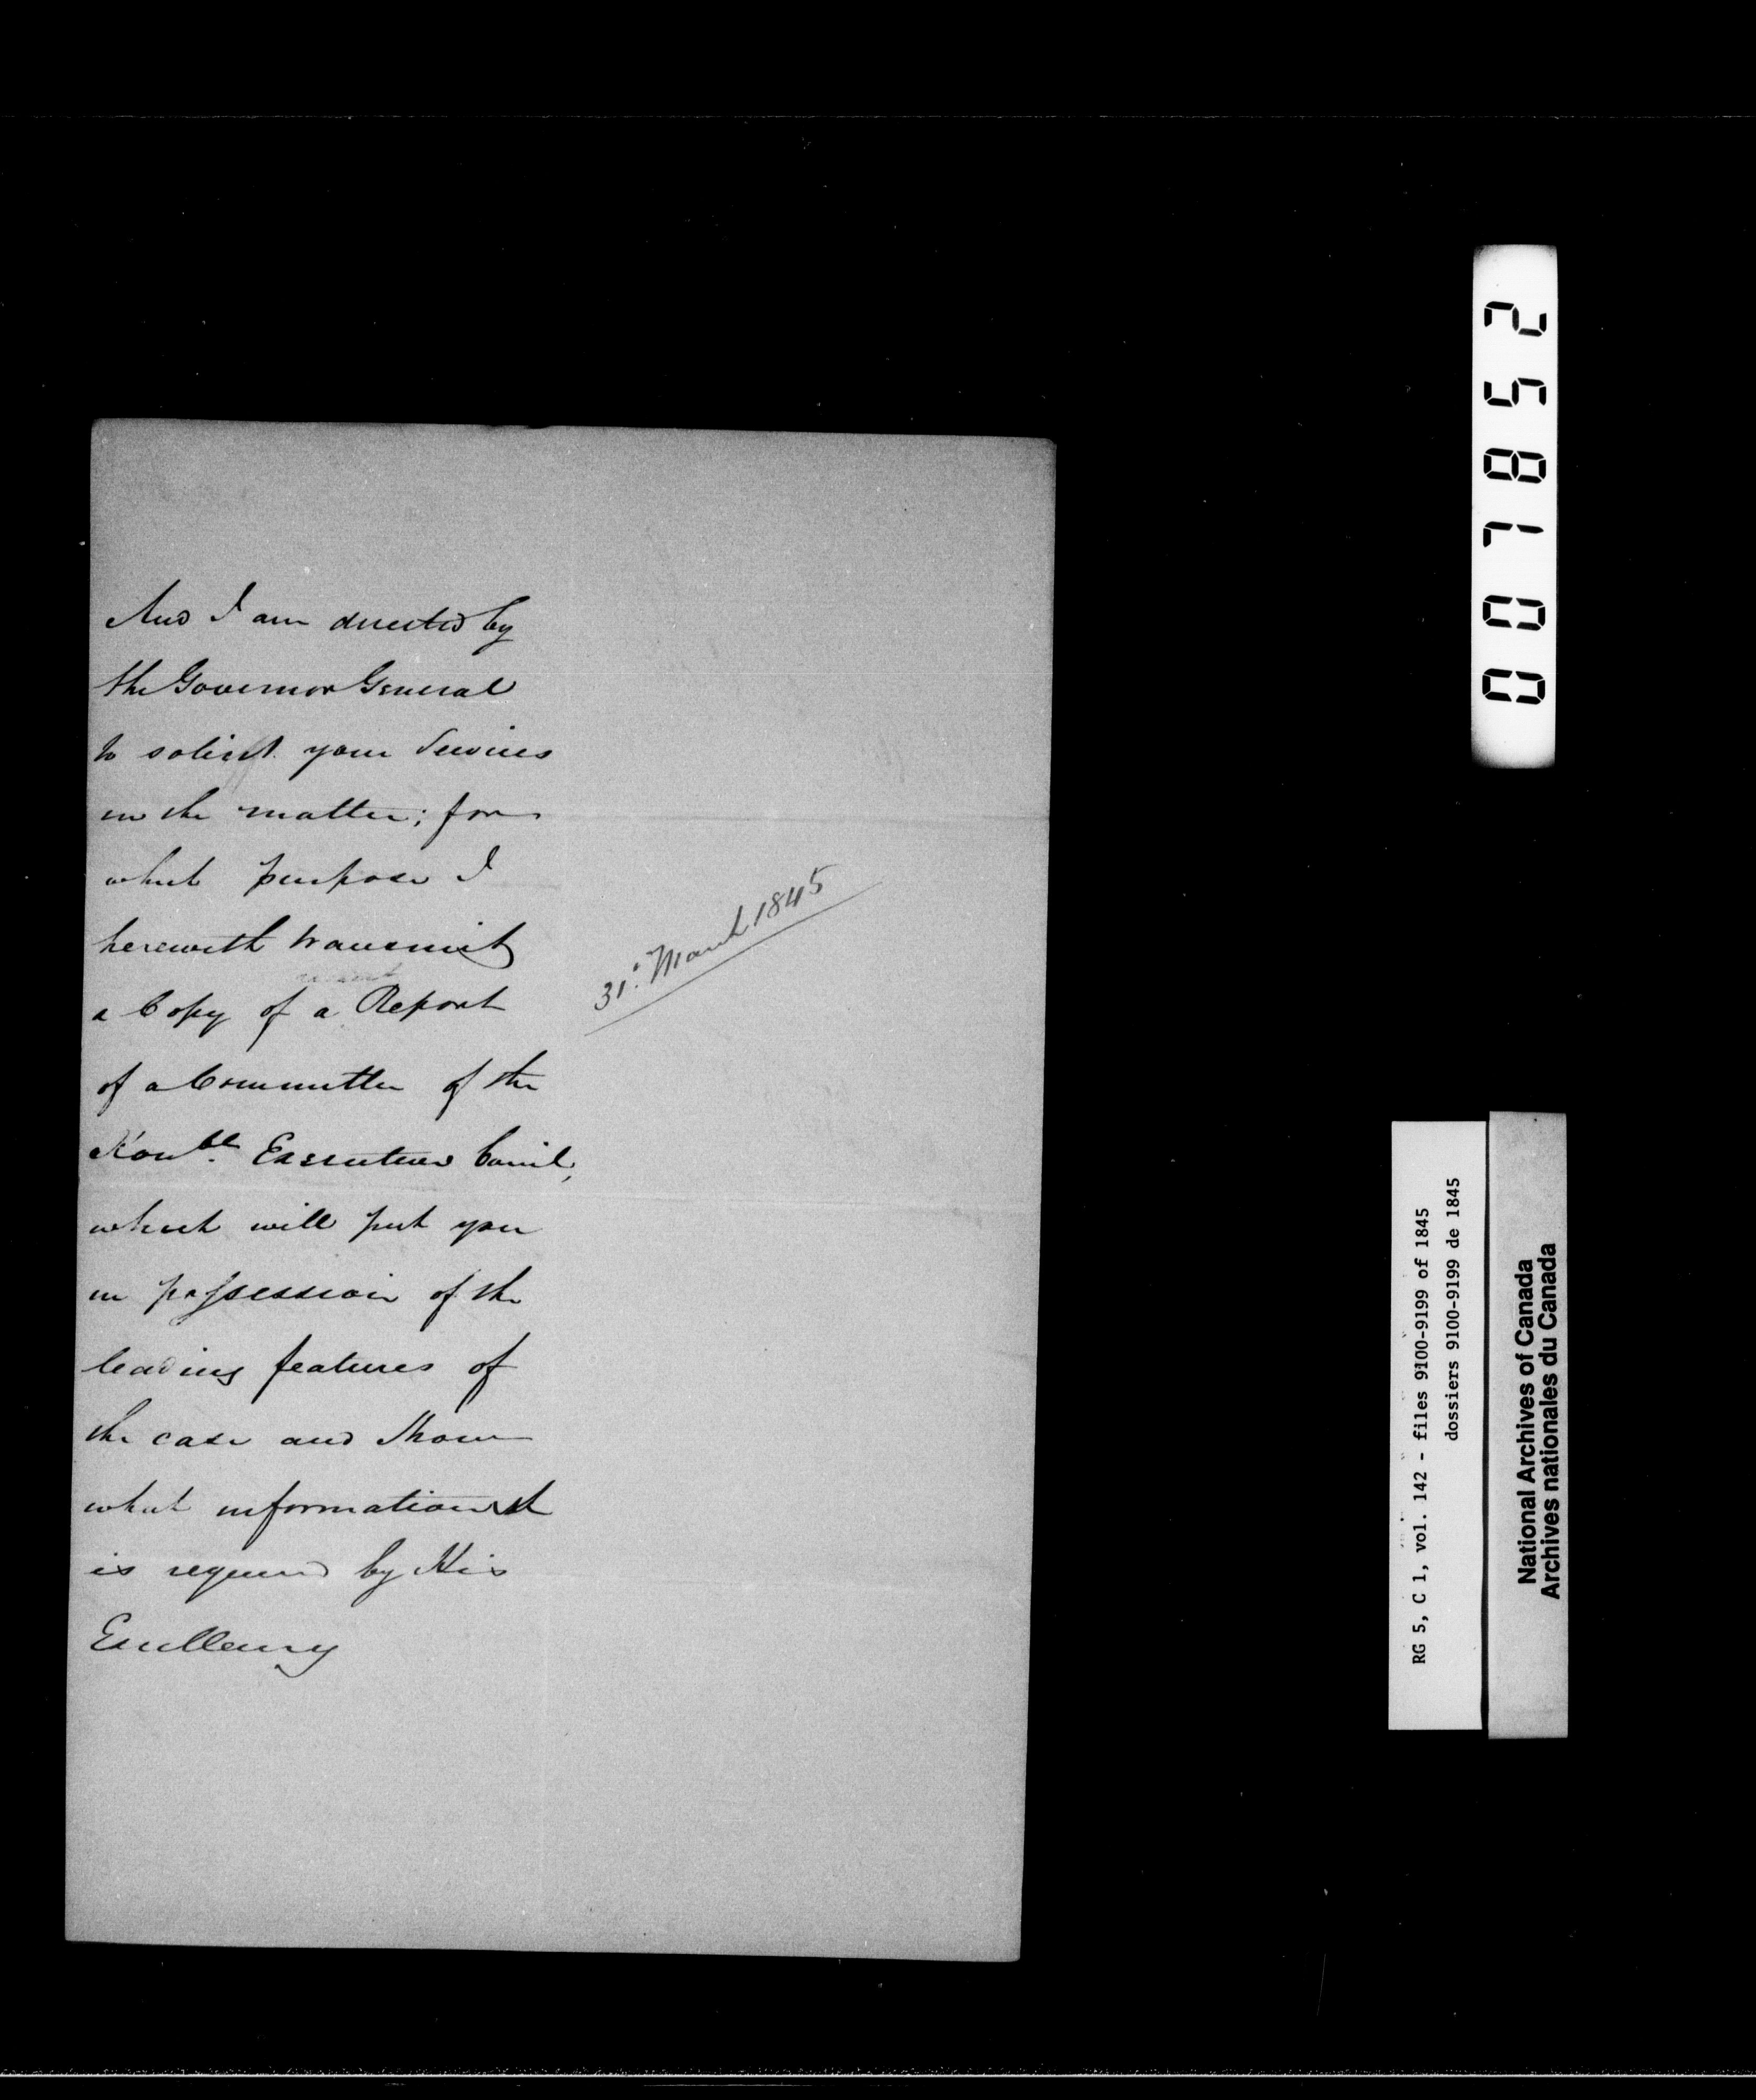 And I am directed by
the Governor General
to solicit your Services
in the matter; for
which purpose I
herewith transmit
a Copy of a Report
of a Committee of the
Honble. Executive Council,
which will put you
in possession of the
leading features of
the case and show
what information
is required by His
Excellency
31st March 1845
0 0 7 8 5 2
RG 5, C 1, vol. 142 - files 9100-9199 of 1845
dossiers 9100-9199 de 1845
National Archives of Canada
Archives nationales du Canada